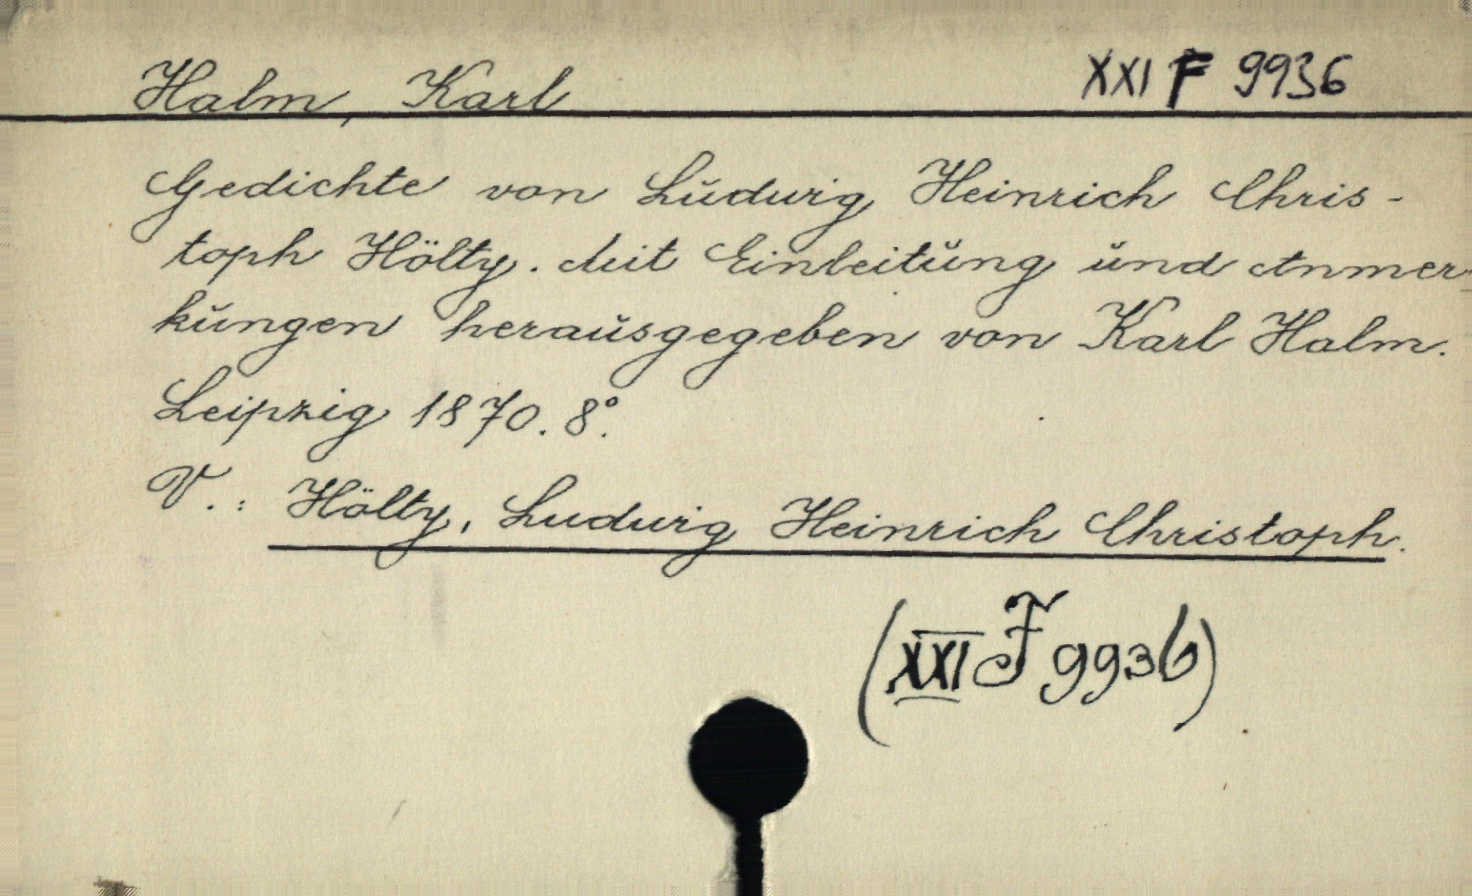 Halm, Karl XXI F 9936
Gedichte von Ludwig Heinrich Chris-
toph Hölty. Mit Einleitung und Anmer-
kungen herausgegeben von Karl Halm.
Leipzig 1870. 8°.
V.: Hölty, Ludwig Heinrich Christoph.
(XXI F 9936)